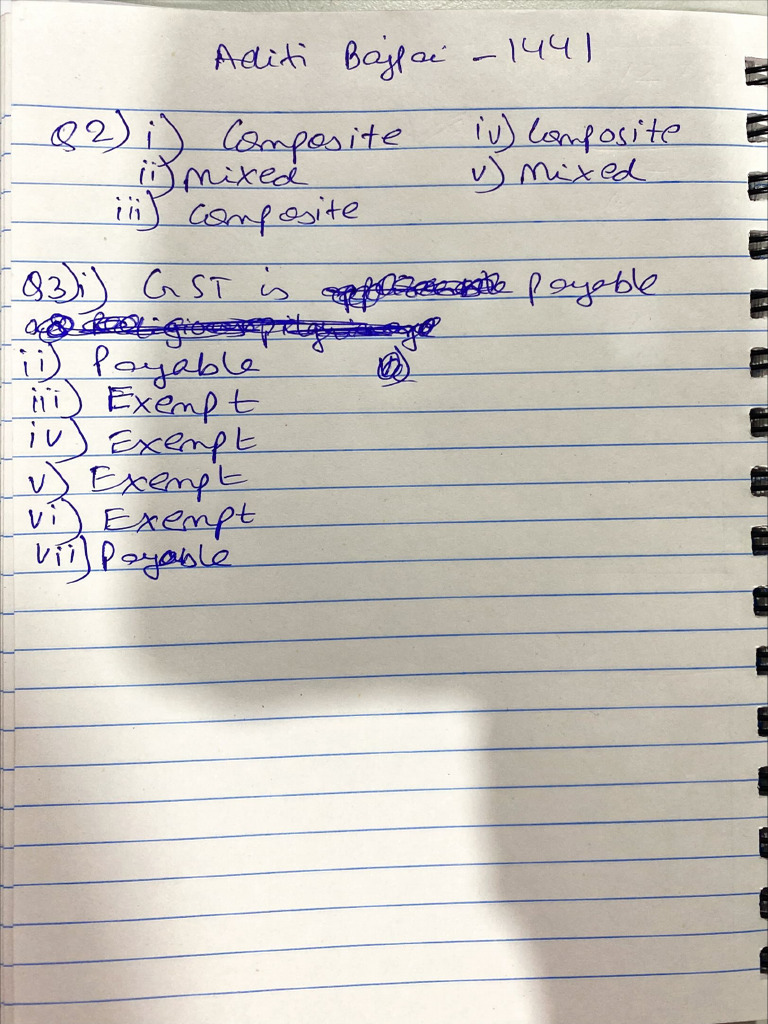 Aditi Bajpai - 1441
Q2) i) Composite iv) Composite
ii) Mixed v) Mixed
iii) Composite
Q3) i) GST is payable
ii) Payable
iii) Exempt
iv) Exempt
v) Exempt
vi) Exempt
vii) Payable